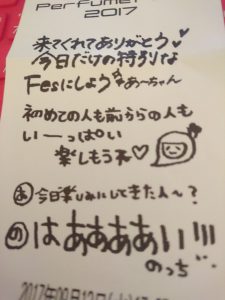 Perfume
2017
来てくれてありがとう♡
今日だけの特別な
Fesにしよう☆あ〜ちゃん
初めての人も前からの人も
いーっぱい
楽しもうネ♡
あ 今日楽しみにしてきた人〜?
の はぁぁぁぁい!!!
のっち